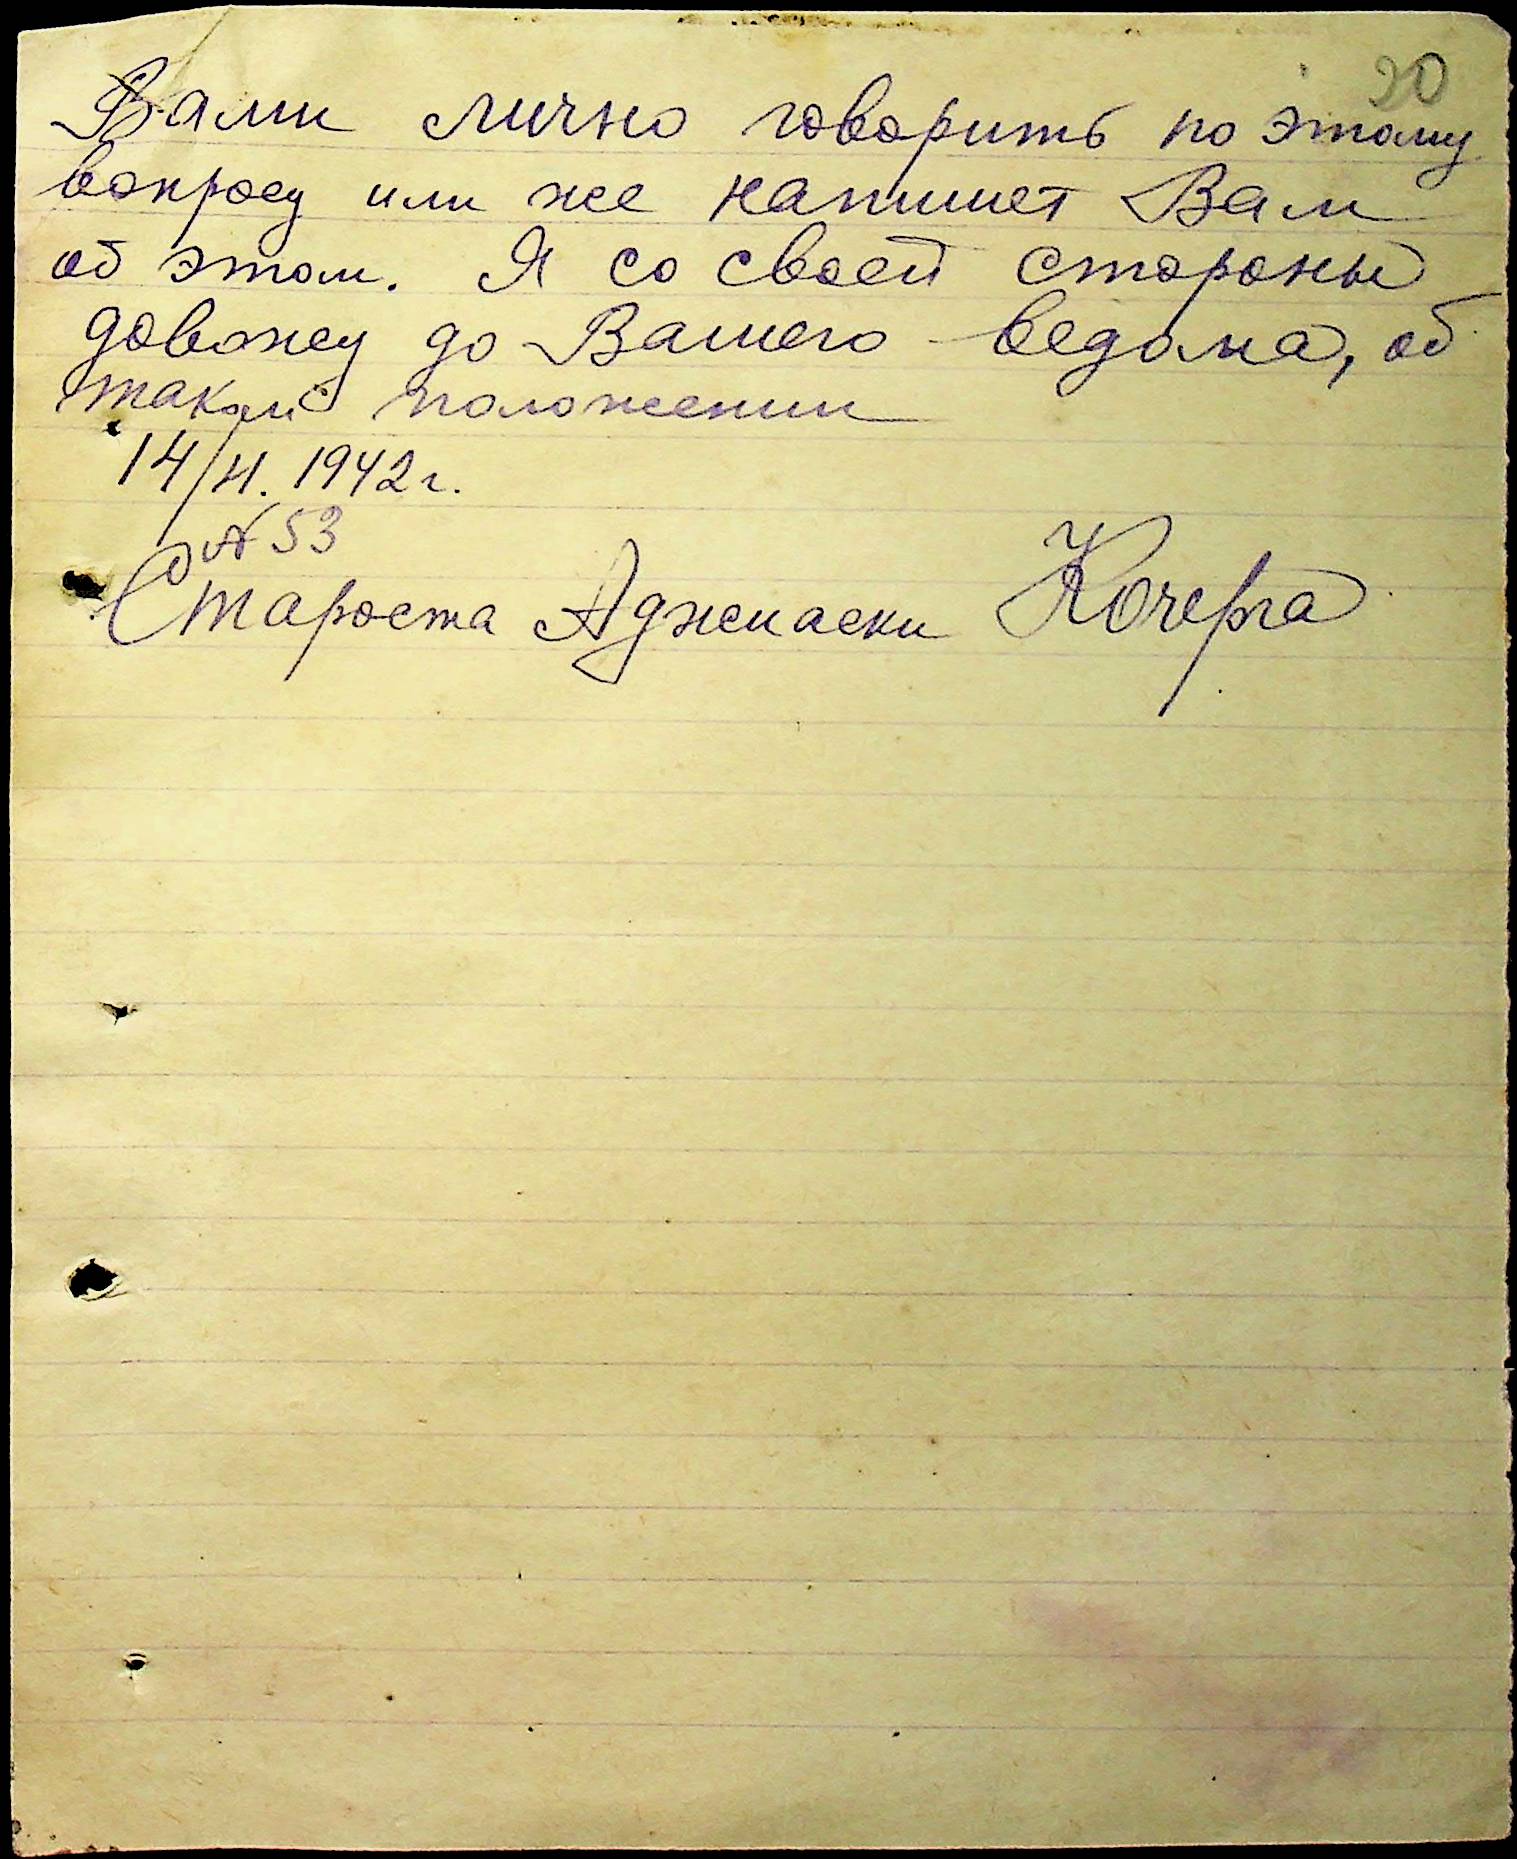 20
Вами лично говорить по этому
вопросу или же напишет Вам
об этом. Я со своей стороны
довожу до Вашего ведома, об
таком положении
14/II. 1942 г.
№ 53
Староста Аджиаски Кочерга